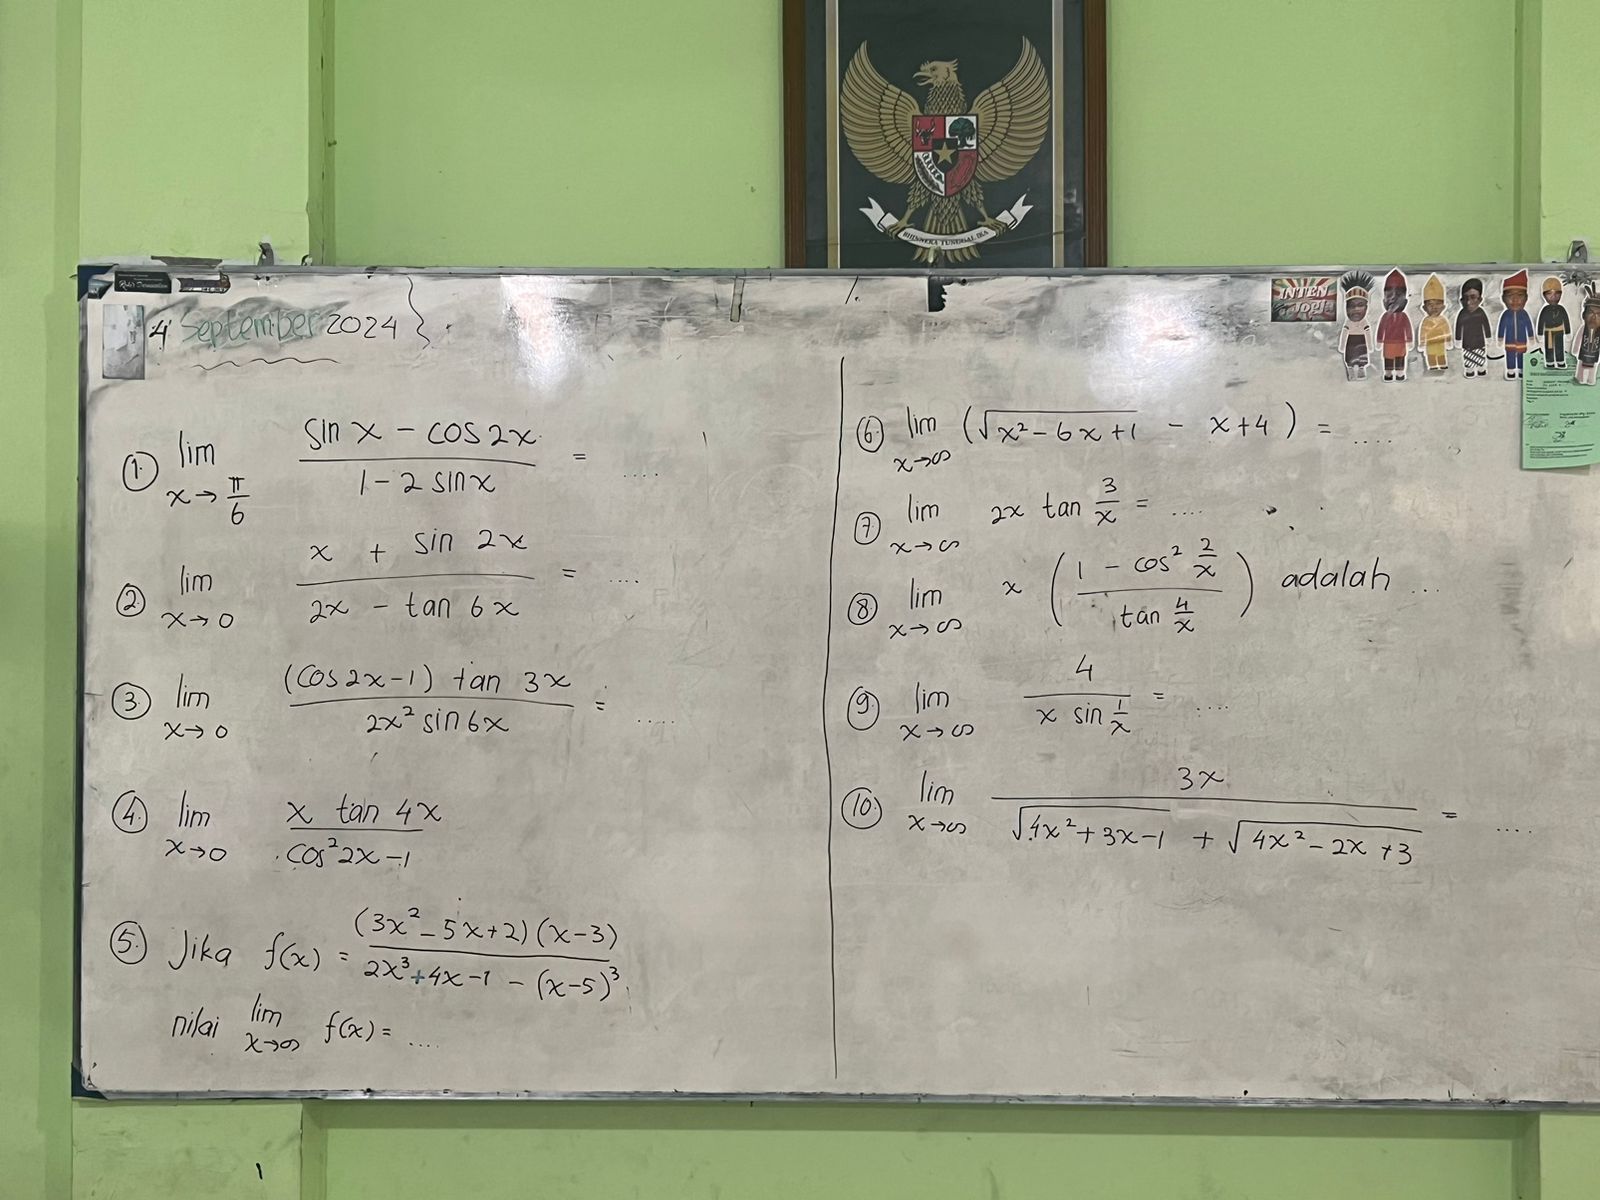 BHINNEKA TUNGGAL IKA
4 September 2024
INTEN
Jogja
① lim x→π/6 (sin x − cos 2x)/(1 − 2 sin x) = ....
② lim x→0 (x + sin 2x)/(2x − tan 6x) = ....
③ lim x→0 ((cos 2x−1) tan 3x)/(2x² sin 6x) = ....
④ lim x→0 (x tan 4x)/(cos² 2x −1)
⑤ Jika f(x) = ((3x² − 5x+2)(x−3))/(2x³+4x−1 − (x−5)³)
nilai lim x→∞ f(x) = ....
⑥ lim x→∞ (√(x² − 6x+1) − x+4) = ....
⑦ lim x→∞ 2x tan 3/x = ....
⑧ lim x→∞ x ((1 − cos² 2/x)/(tan 4/x)) adalah ...
⑨ lim x→∞ 4/(x sin 1/x) = ....
⑩ lim x→∞ 3x/(√(4x²+3x−1) + √(4x²−2x+3)) = ....